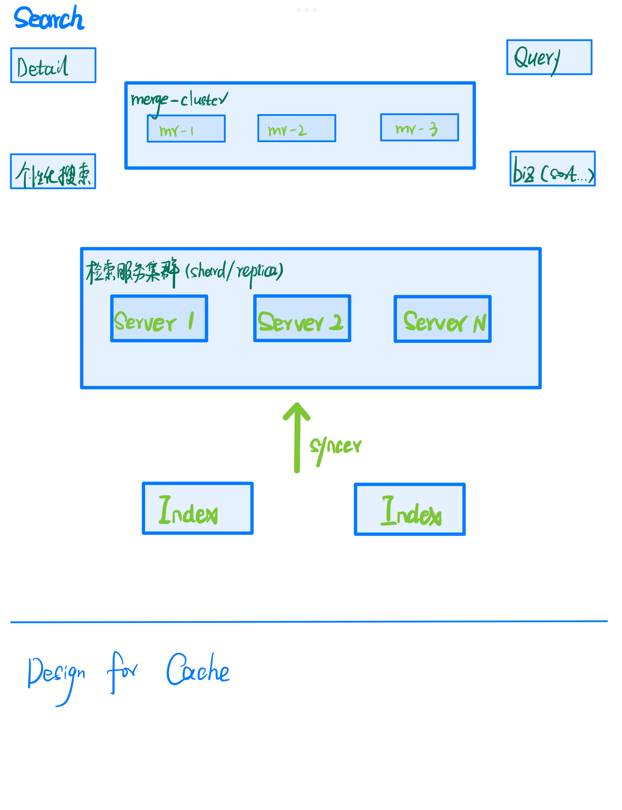 Search
Detail
Query
merge-cluster
mr-1
mr-2
mr-3
个性化搜索
biz (sort...)
检索服务集群 (shard/replica)
Server 1
Server 2
Server N
syncer
Index
Index
Design for Cache